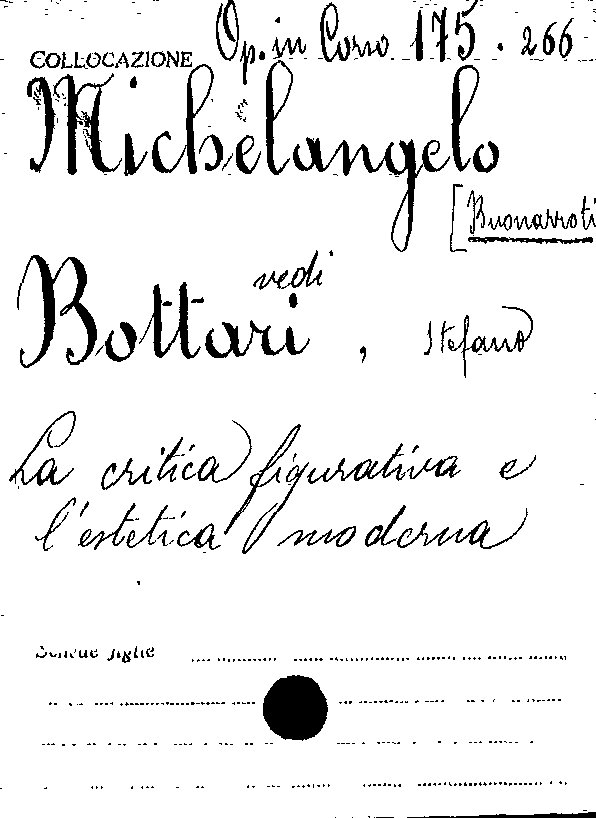 COLLOCAZIONE Op. in Corso 175. 266
Michelangelo
[Buonarroti
vedi
Bottari, Stefano
La critica figurativa e
l'estetica moderna
Schede figlie